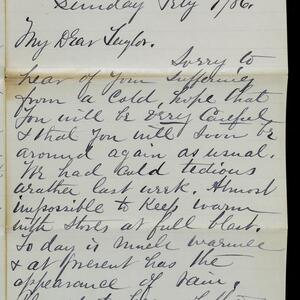 Sunday Feby 7/86.
My Dear Taylor.
Sorry to
hear of your suffering
from a Cold, hope that
you will be very Careful
& that you will soon be
around again as usual.
We had Cold tedious
weather last week. Almost
impossible to Keep warm
with Stoves at full blast.
To day is Much warmer
& at present has the
appearance of rain.